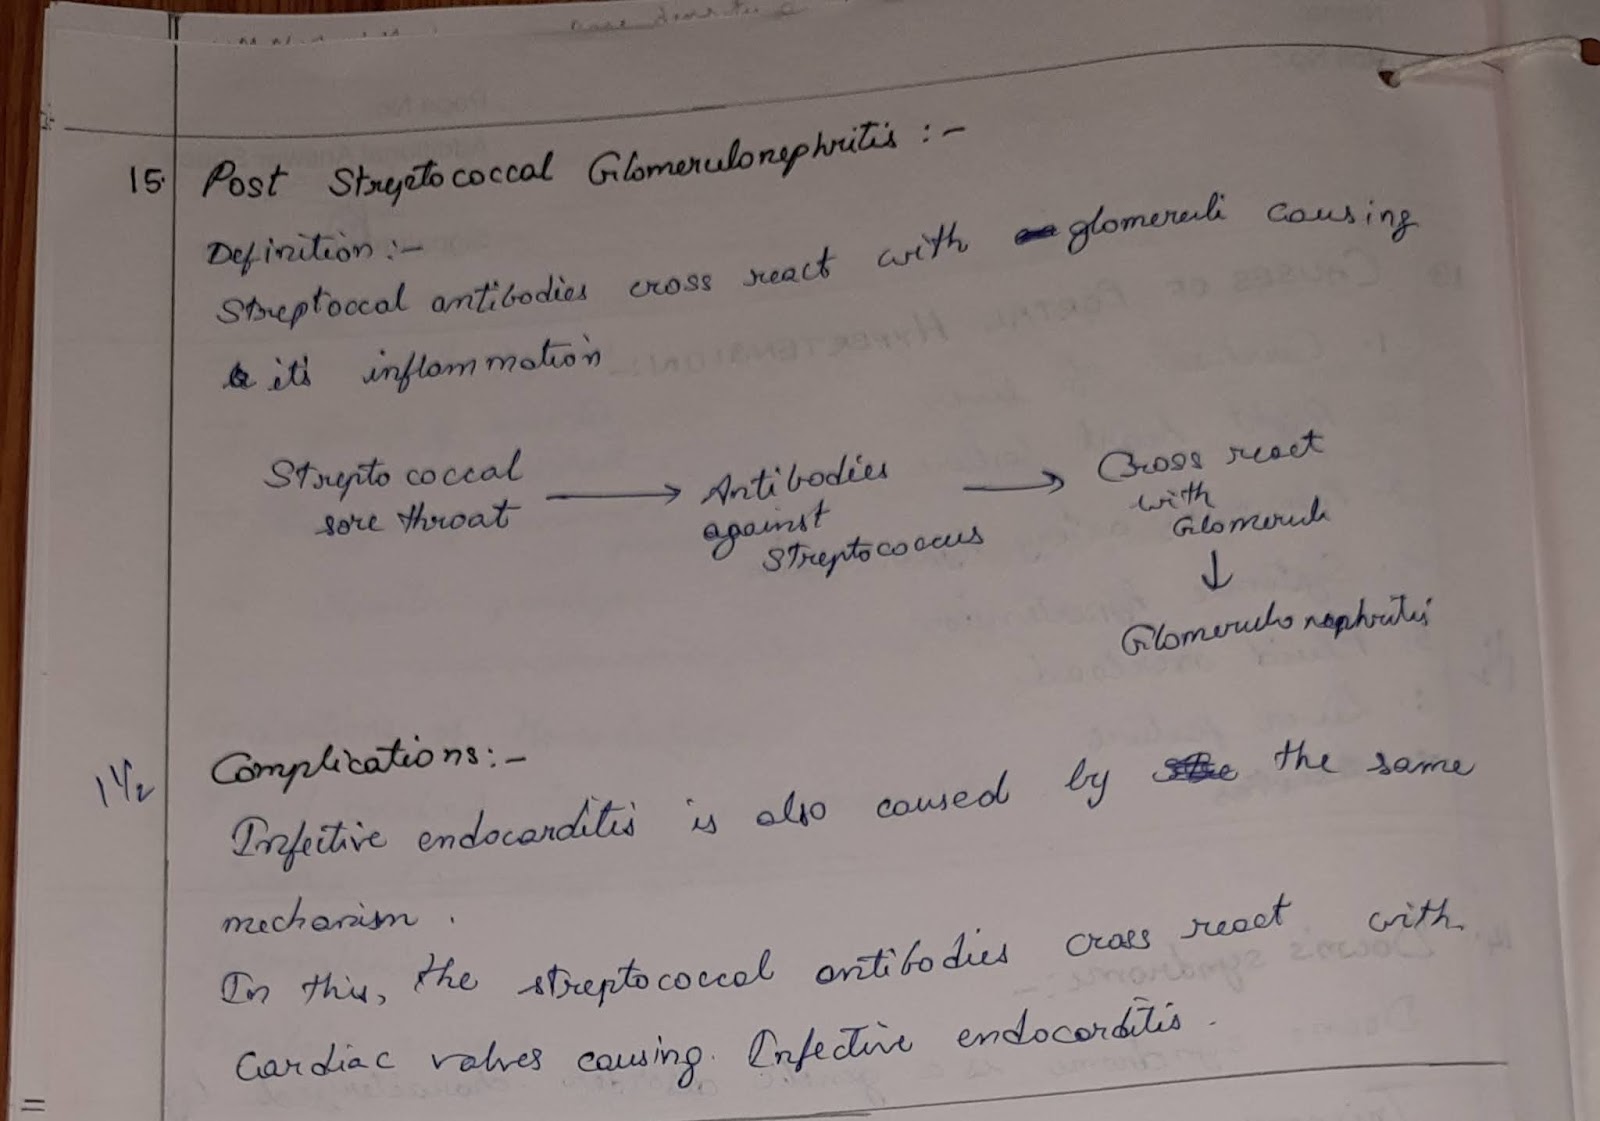 15. Post Streptococcal Glomerulonephritis :-
Definition :-
Streptoccal antibodies cross react with glomeruli causing
it's inflammation
Strepto coccal sore throat → Antibodies against Streptococcus → Cross react with Glomeruli
↓
Glomerulo nephritis
1 1/2 Complications :-
Infective endocarditis is also caused by the same
mechanism.
In this, the streptococcal antibodies cross react with
Cardiac valves causing. Infective endocarditis.
=